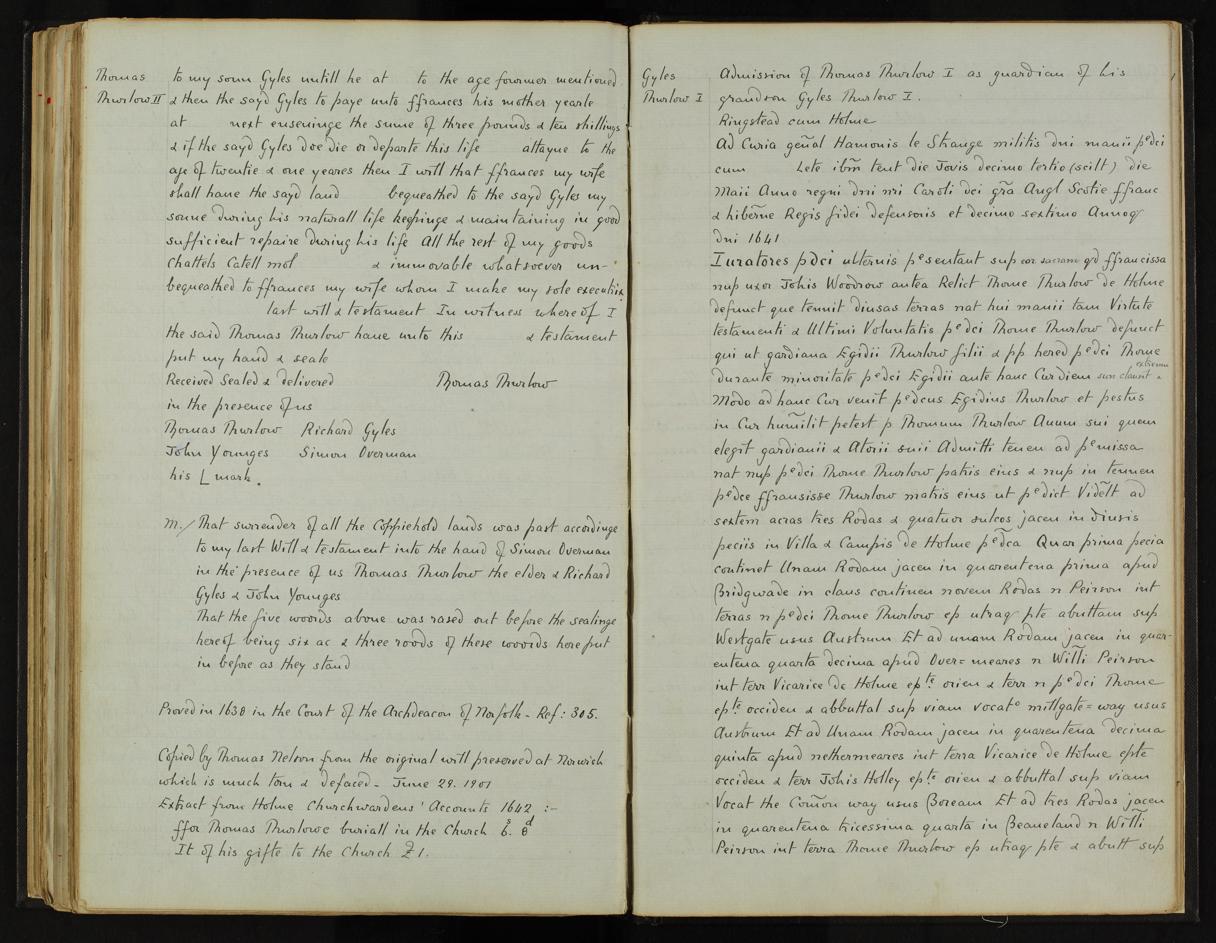 Thomas Thurlow II
to my sonn Gyles untill he at to the age fowrmer mentioned
& then the sayd Gyles to paye unto ffrances his mother yearle
at next enseuinge the sume of three pounds & ten shillings
& if the sayd Gyles doe die or departe this life attayne to the
age of twentie & one yeares then I will that ffrances my wife
shall have the sayd land bequeathed to the sayd Gyles my
sonne during his naturall life keepinge & maintaining in good
sufficient repaire during his life All the rest of my goods
chattels Catell mol & immovable whatsoever un-
bequeathed to ffrances my wife whom I make my sole executrix
last will & testament In witness whereof I
the said Thomas Thurlow have unto this & testament
put my hand & seale
Received Sealed & delivered Thomas Thurlow
in the presence of us
Thomas Thurlow Richard Gyles
John Younges Simon Overman
his L mark.
m./ That surrender of all the Coppiehold lands was past accordinge
to my last Will & testament into the hand of Simon Overman
in the presence of us Thomas Thurlow the elder & Richard
Gyles & John Younges
That the five woords above was rased out before the sealinge
hereof being six ac & three roods of these woords here put
in before as they stand
Proved in 1638 in the Court of the Archdeacon of Norfolk - Ref: 305.
Copied by Thomas Nelson from the original will preserved at Norwich
which is much torn & defaced - June 29. 1901
Extract from Holme Churchwardens' Accounts 1642 :-
ffor Thomas Thurlowe buriall in the Church 6s. 8d
It of his gifte to the Church £1.
Gyles Thurlow I
Admission of Thomas Thurlow I as guardian of his
grandson Gyles Thurlow I.
Ringstead cum Holme
Ad Curia geñal Hamonis le Strange militis dni manii pedci
cum Lete ibm̃ tent die Jovis decimo tertio (scilt) die
Maii Anno regni dni nri Caroli dei gra Angl Scotie ffranc
& hiberne Regis fidei defensoris et decimo sextimo Annoq
dni 1641
Iuratores pdci ulternis pesentant sup cor sacram qd ffrancissa
nup uxor Johis Woodrow antea Relict Thome Thurlow de Holme
defunct que tenuit diusas terras nat hui manii tam Virtute
testamenti & Ultimi Voluntatis pedci Thome Thurlow defunct
qui ut gardiana Egidii Thurlow filii & pp hered pedci Thome
durante minoritate pedci Egidii ante hanc Cur diem suu clausit extremu
Modo ad hanc Cur venit pedcus Egidius Thurlow et pestus
in Cur humilit petest p Thomum Thurlow Auum sui quem
elegit gardianii & Atorii suii Admitti tenen ad pemissa
nat nup pedci Thome Thurlow patris eius & nup in tenuen
pedce ffransisse Thurlow matris eius ut pedict Videlt ad
sextem acras tres Rodas & quatuor sulcos jacen in diusis
peciis in Villa & Campis de Holme pedca Quar prima pecia
continet Unam Rodam jacen in quarentena prima apud
Bridgwade in claus continen novem Rodas n Peirson int
terras n pedci Thome Thurlow ep utraq pte abuttam sup
Westgate usus Austrum Et ad unam Rodam jacen in quar-
entena quarta decima apud Over=meares n Willi Peirson
int terr Vicarice de Holme epte orien & terr n pedci Thome
epte occiden & abbuttal sup viam vocato millgate=way usus
Austrum Et ad Unam Rodam jacen in quarentena decima
quinta apud nethermeares int terra Vicarice de Holme epte
occiden & terr Johis Holley epte orien & abbuttal sup viam
Vocat the Com̃on way usus Boream Et ad tres Rodas jacen
in quarentena tricessima quarta in Beaneland n Willi
Peirson int terra Thome Thurlow ep utraq pte & abutt sup